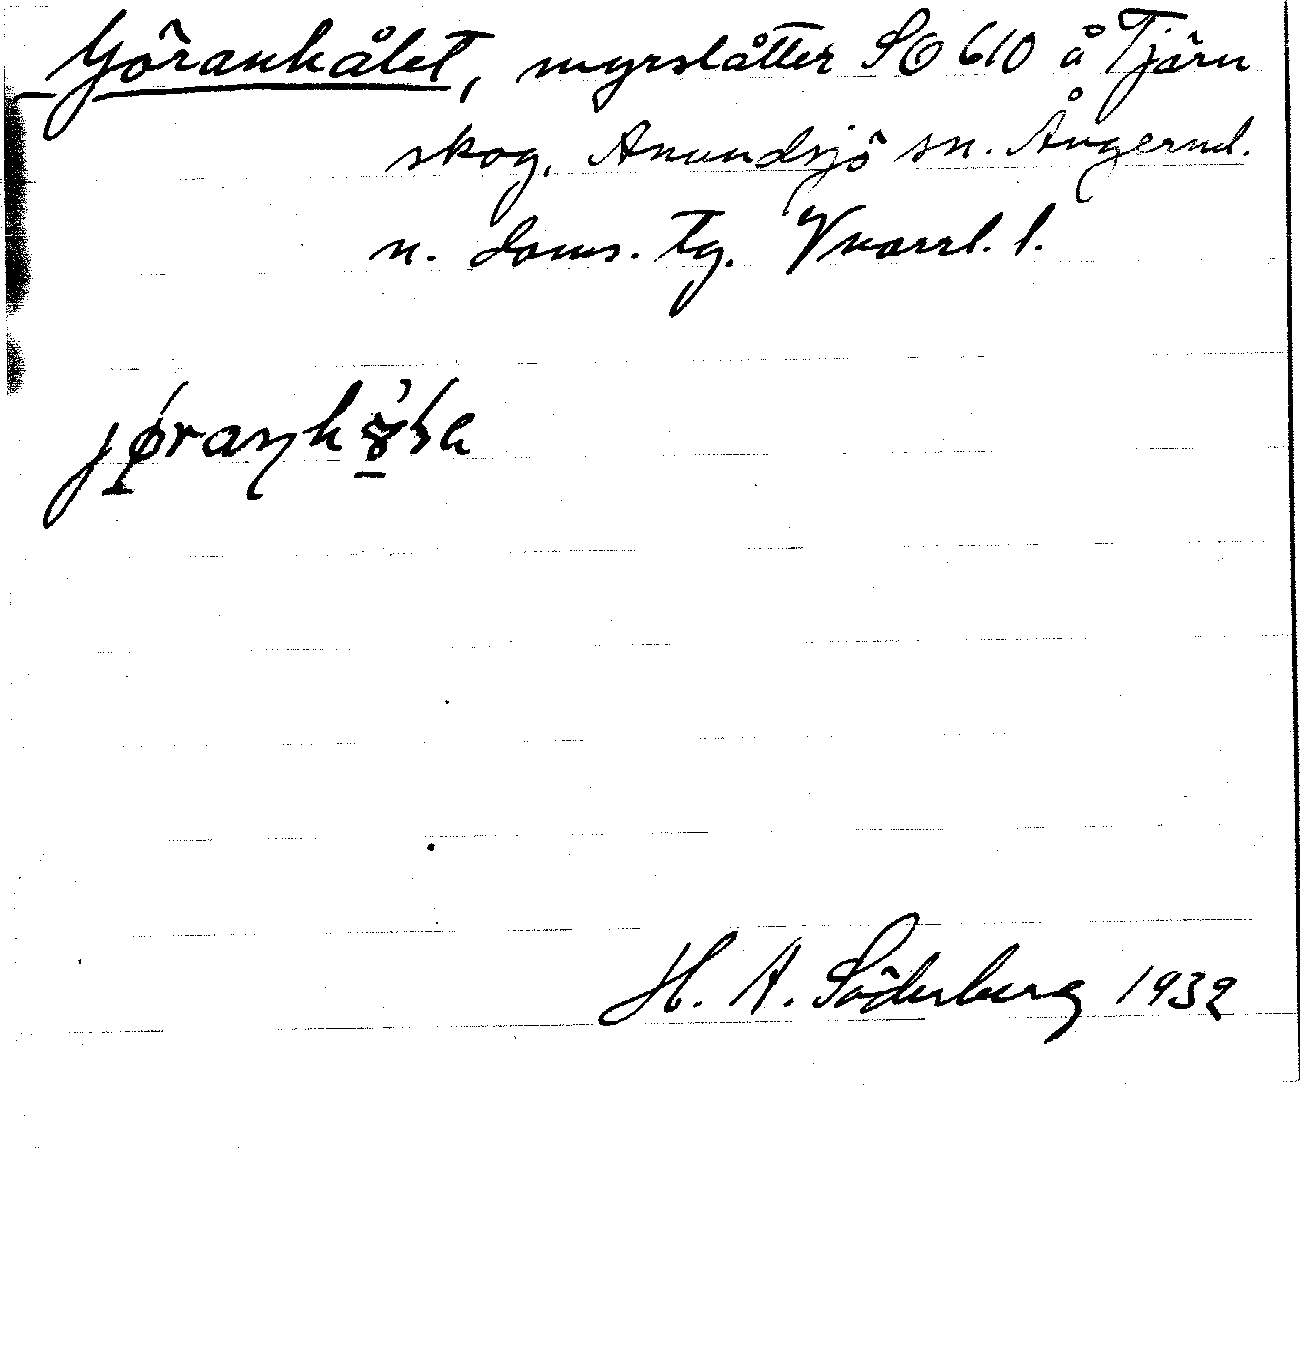 Göranhålet, myrslåtter SO 610 å Tjärn
skog, Anundsjö sn. Ångerml.
n. doms. tg. Kvarrl. l.
H. A. Söderberg 1932